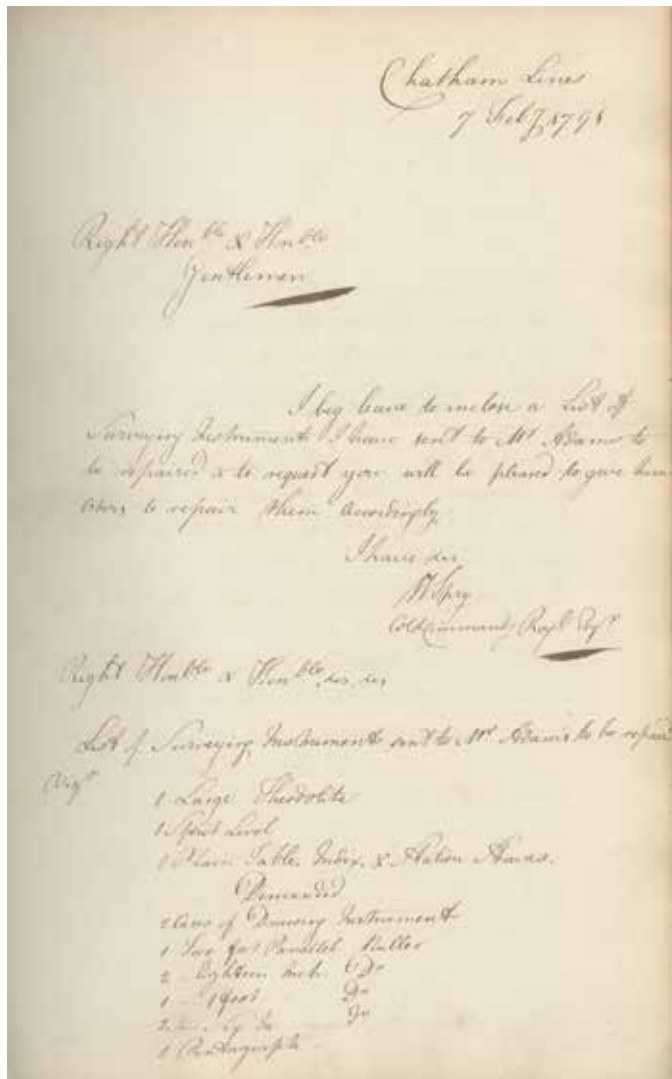 Chatham Lines
7 Feby 1791
Right Honble & Honble
Gentlemen
I beg leave to inclose a List of
Surveying Instruments I have sent to Mr Adams to
be repaired & to request you will be pleased to give him
orders to repair them accordingly
I have &c
W Spry
Col Commandt Royl Engrs
Right Honble & Honble &c &c
List of Surveying Instruments sent to Mr Adams to be repaired
Vizt
1 Large Theodolite
1 Spirit Level
1 Plain Table, Index, & Station Staves
Demanded
2 Cases of Drawing Instruments
1 Two feet Parallel Ruller
2 Eighteen Inch Do
1 1 foot Do
2 Six In Do
1 Pentagraph